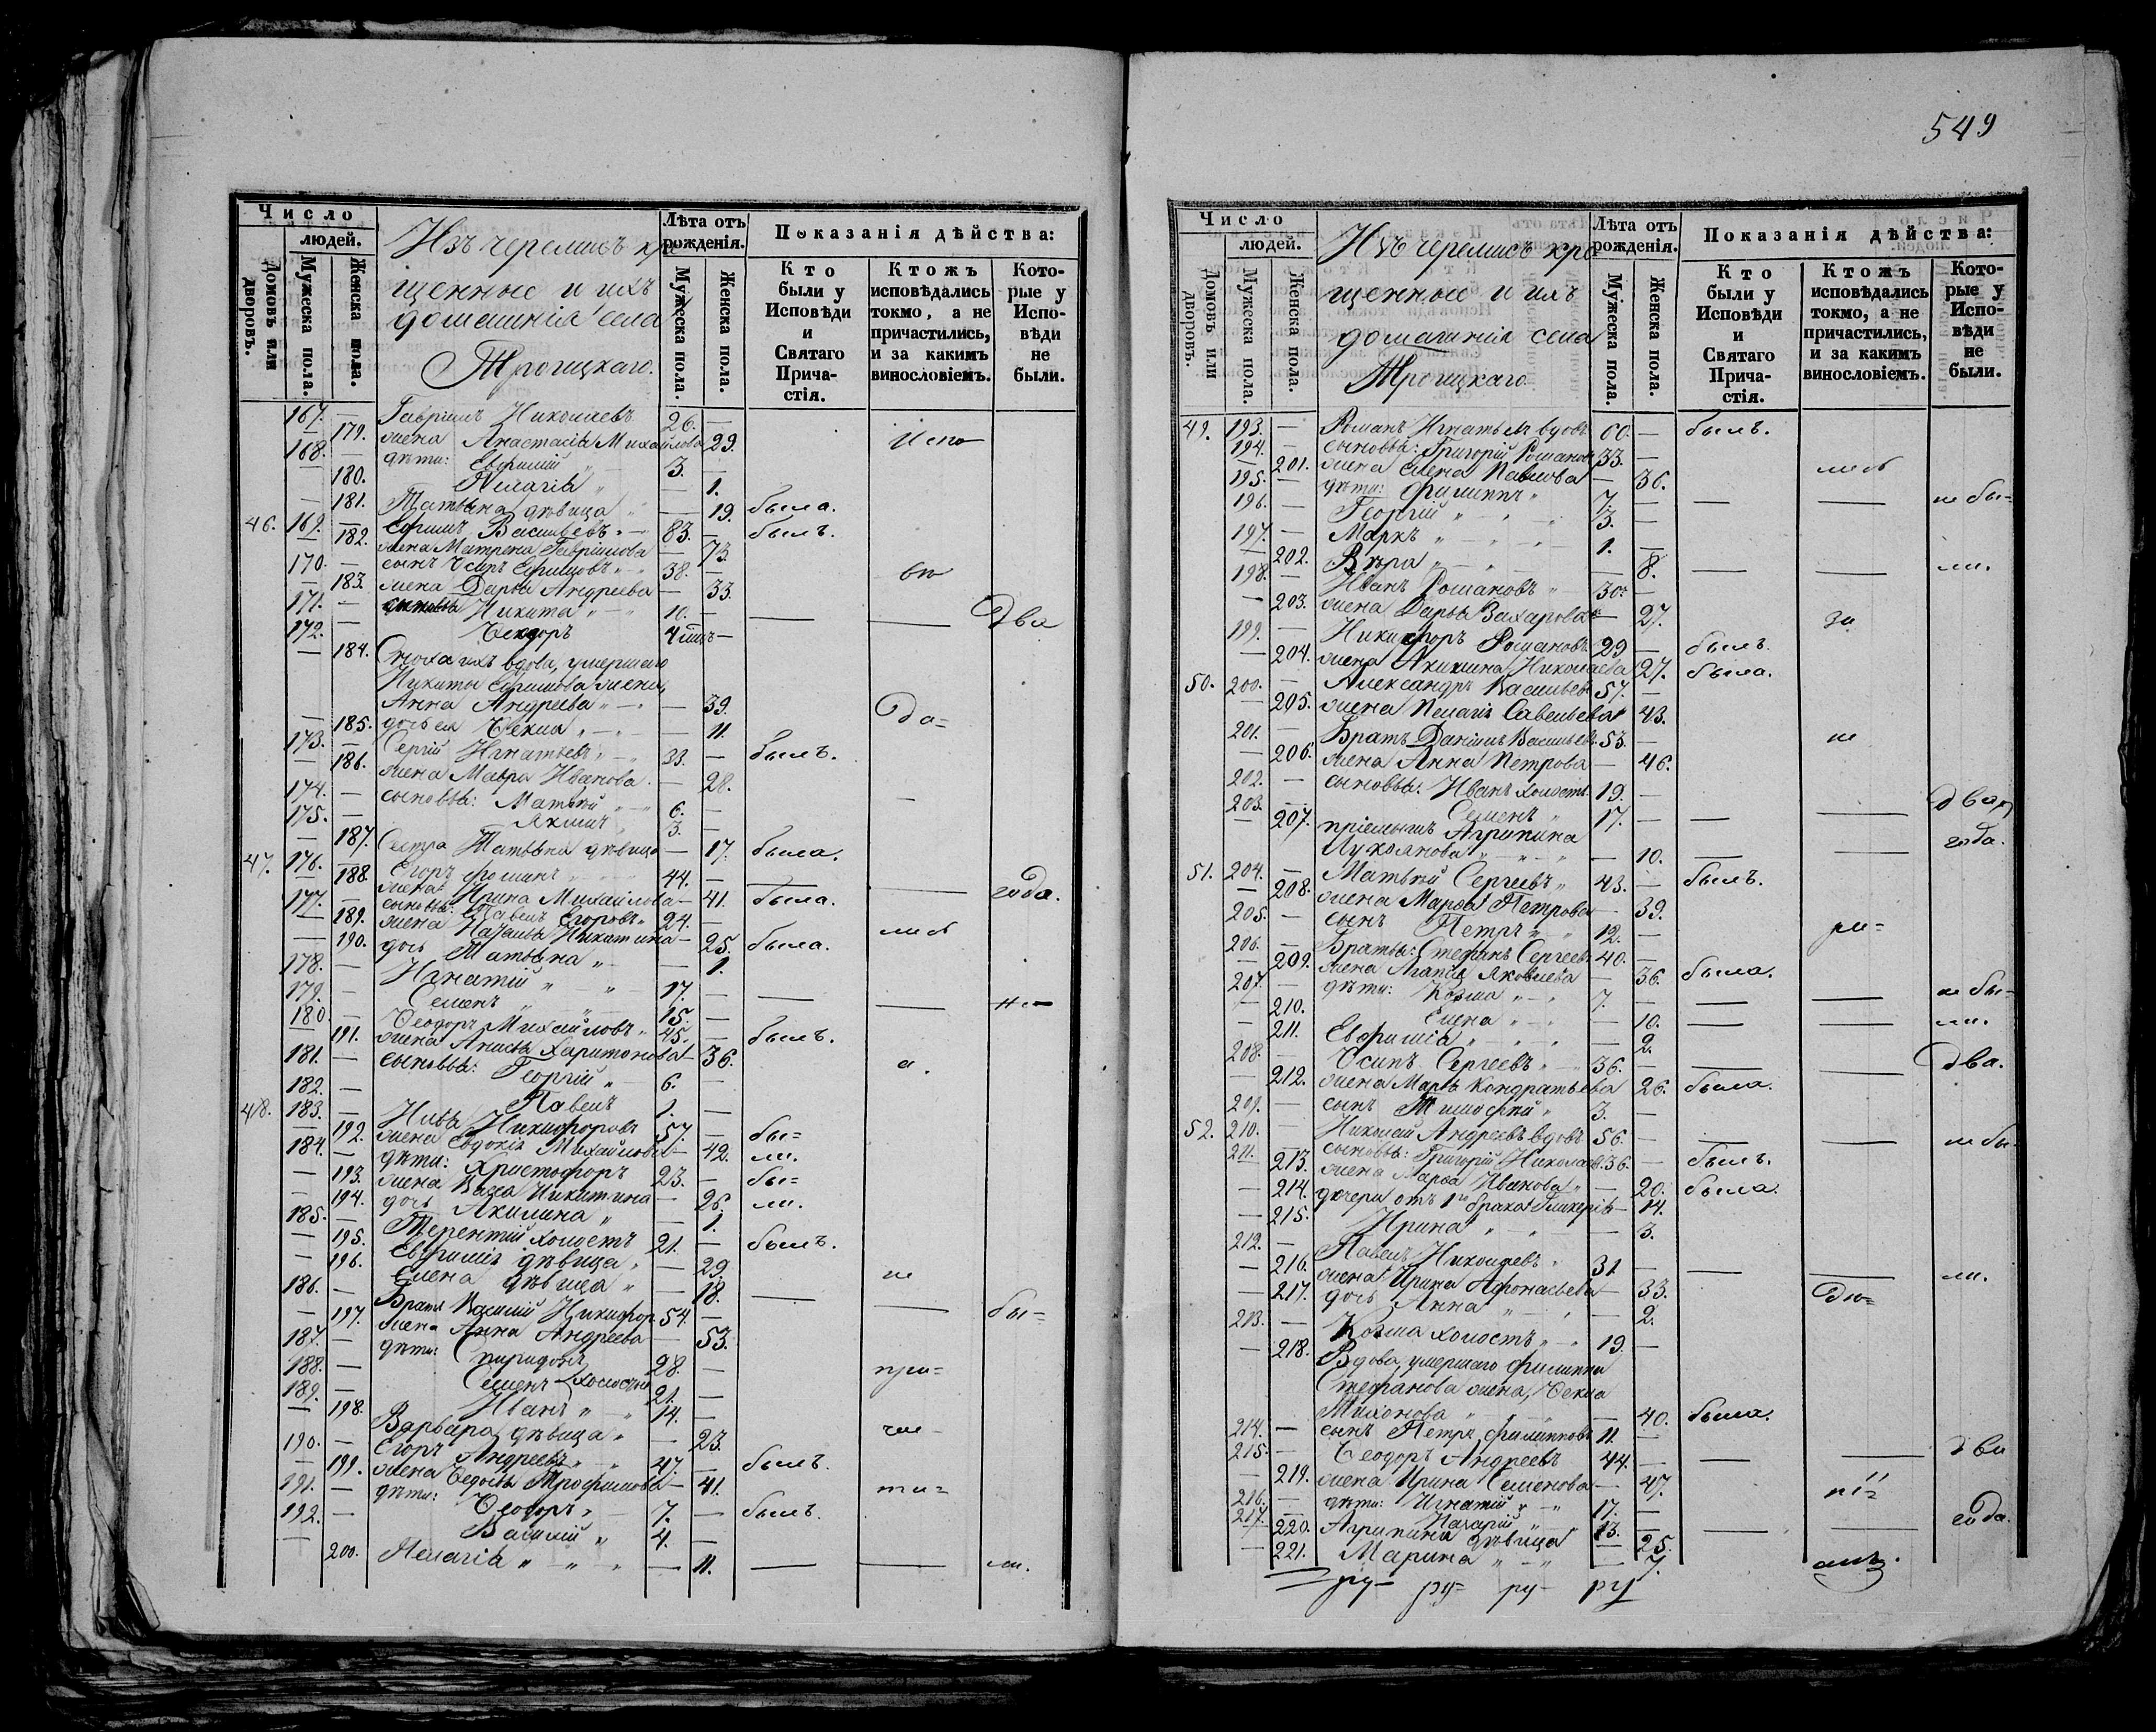 549
Число
людей.
Домовъ или дворовъ.
Мужеска пола.
Женска пола.
Изъ черемисъ кре
щенные и ихъ
домашнія села
Троицкаго.
Лѣта отъ рожденія.
Мужеска пола.
Женска пола.
Показанія дѣйства:
Кто были у Исповѣди и Святаго Причастія.
Ктожъ исповѣдались токмо, а не причастились, и за какимъ винословіемъ.
Которые у Исповѣди не были.
167. — Гавріилъ Николаевъ 26. —
— 179. жена Анастасія Михайлова 29. Испо
168. — дѣти: Евфимій „ 3. —
— 180. Пелагія „ — 1.
— 181. Татьяна дѣвица „ — 19. была.
46. 169. — Ефимъ Васильевъ „ 83. — былъ.
— 182. жена Матрена Гавріилова — 73.
170. — сынъ Осипъ Ефимовъ „ 38. — вѣ
— 183. жена Дарья Андреева — 33.
171. — Никита „ 10. — — — Два
172. — Ѳеодоръ
— 184. Сноха ихъ вдова, умершаго
Никиты Ефимова жена,
Анна Андреева „ — 39.
— 185. дочь ея Ѳекла „ — 11. да=
173. — Сергій Игнатьевъ „ 33. — былъ.
— 186. жена Мавра Иванова. — 28.
174. — сыновья: Матвѣй „ 6. —
175. — Якимъ 3. —
— 187. Сестра Татьяна дѣвица — 17. была.
47. 176. — Егоръ Фоминъ 44. — — — года.
— 188. жена Ирина Михайлова — 41. была.
177. — сыновья: Павелъ Егоровъ „ 24. —
— 189. жена Наталья Никитина — 25. была. лись
— 190. дочь Татьяна „ — 1.
178. — Игнатій „ 17. — — — не
179. — Семенъ „ 15. —
180. — Ѳеодоръ Михайловъ „ 45. — былъ.
— 191. жена Анисья Харитонова — 36. а.
181. — сыновья: Георгій „ 6. —
182. — Павелъ 1. —
48. 183. — Илья Никифоровъ 57. — бы=
— 192. жена Евдокія Михайлова — 42. ли.
184. — дѣти: Христофоръ 23. — бы=
— 193. жена Васса Никитина — 26. ли.
— 194. дочь Акилина „ — 1.
185. — Терентій холостъ 21. — былъ.
— 195. Евфимія дѣвица „ — 29.
— 196. Елена дѣвица „ — 18. не
186. — Братъ Василій Никифор. 54. — — — бы=
— 197. жена Анна Андреева — 53.
187. — дѣти: Спиридонъ 28. —
188. — Семенъ холостые 21. — при=
189. — Иванъ „ 14. —
— 198. Варвара дѣвица „ — 23. ча
190. — Егоръ Андреевъ „ 47. — былъ.
— 199. жена Ѳедосья Трофимова — 41.
191. — дѣти: Ѳеодоръ „ 7. — былъ. ти=
192. — Василій „ 4. —
— 200. Пелагія „ — 11. — — ли.
Число
людей.
Домовъ или дворовъ.
Мужеска пола.
Женска пола.
Изъ черемисъ кре
щенные и ихъ
домашнія села
Троицкаго.
Лѣта отъ рожденія.
Мужеска пола.
Женска пола.
Показанія дѣйства:
Кто были у Исповѣди и Святаго Причастія.
Ктожъ исповѣдались токмо, а не причастились, и за какимъ винословіемъ.
Которые у Исповѣди не были.
49. 193. — Романъ Игнатьевъ вдовъ 60. — былъ.
194. — сыновья: Григорій Романовъ 33. —
— 201. жена Елена Павлова — 36. лись
195. — дѣти: Филиппъ „ 7. — — — не бы=
196. — Георгій „ 3. —
197. — Маркъ „ 1. —
— 202. Вѣра „ — 8. — — ли.
198. — Иванъ Романовъ „ 30. —
— 203. жена Дарья Захарова — 27. за
199. — Никифоръ Романовъ 29 — былъ.
— 204. жена Акилина Николаева 27. была.
50. 200. — Александръ Васильевъ 57. —
— 205. жена Пелагія Савельева 43.
201. — Братъ Даніилъ Васильевъ 53. — не
— 206. жена Анна Петрова — 46.
202. — сыновья: Иванъ холостъ. 19. —
203. — Семенъ „ 17. — — — два
— 207. пріемышъ Агрипина
Лукоянова „ — 10. — — года.
51. 204. — Матвѣй Сергѣевъ „ 43. — былъ.
— 208. жена Марѳа Петрова — 39.
205. — сынъ Петръ „ 12. — ра=
206. — Братья: Стефанъ Сергѣевъ 40. —
— 209. жена Агапія Яковлева 36. была.
207. — дѣти: Козма „ 7. — — — не бы=
— 210. Елена „ — 10. — — ли.
— 211. Евфимія „ — 2.
208. — Осипъ Сергѣевъ „ 36. — — — два.
— 212. жена Марья Кондратьева 26. была.
209. — сынъ Тимофей „ 3. —
52. 210. Николай Андреевъ вдовъ 56. — — — не бы
211. — сыновья: Григорій Николаев. 36. — былъ.
— 213. жена Марѳа Иванова „ — 20. была.
— 214. дочери отъ 1го брака Гликерія — 14.
— 215. Ирина „ — 3.
212. — Павелъ Николаевъ „ 31. — — — ли.
— 216. жена Ирина Афонасьева — 33.
— 217. дочь Анна „ — 2.
213. — Козма холостъ „ 19. —
— 218. Вдова, умершаго Филиппа
Стефанова жена, Ѳекла
— 40. была.
214. — сынъ Петръ Филипповъ 11. —
215. — Ѳеодоръ Андреевъ 44. — — — два
— 219. жена Ирина Семенова — 47.
216. — дѣти: Игнатій „ 17. — ні=
217. — Назарій „ 13. — — — года.
— 220. Агрипина дѣвица — 25.
— 221. Марина „ — 7.
ру= ру= ру= ру